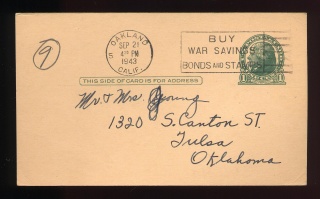 9
OAKLAND
SEP 21
4 PM
1943
CALIF.
BUY
WAR SAVINGS
BONDS AND STAMPS
THIS SIDE OF CARD IS FOR ADDRESS
Mr. & Mrs. Young
1320 S. Canton ST.
Tulsa
Oklahoma